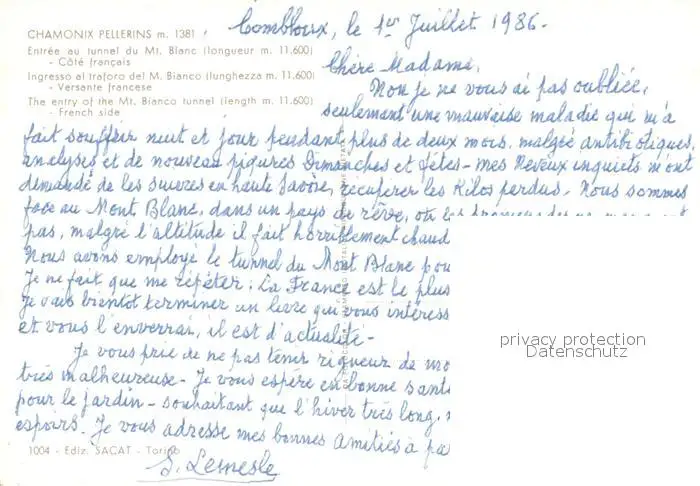 Combloux, le 1er Juillet 1986.
CHAMONIX PELLERINS m. 1381
Entrée au tunnel du Mt. Blanc (longueur m. 11.600)
- Côté français
Ingresso al traforo del M. Bianco (lunghezza m. 11.600)
- Versante francese
The entry of the Mt. Bianco tunnel (length m. 11.600)
- French side
Chère Madame,
Non je ne vous ai pas oubliée,
seulement une mauvaise maladie qui m'a
fait souffrir nuit et jour pendant plus de deux mois, malgré antibiotiques,
analyses et de nouveau piqures Dimanches et fêtes - mes Neveux inquiets m'ont
demandé de les suivres en haute Savoie, récupérer les Kilos perdus. Nous sommes
face au Mont Blanc, dans un pays de rêve, où les promenades
pas, malgré l'altitude il fait horriblement chaud
Nous avons employé le tunnel du Mont Blanc pou
Je ne fait que me répéter: La France est le plus
Je vais bientôt terminer un livre qui vous intéress
et vous l'enverrai, il est d'actualité -
Je vous prie de ne pas tenir rigueur de mo
très malheureuse - Je vous espère en bonne sant
pour le jardin - souhaitant que l'hiver très long,
espoirs. Je vous adresse mes bonnes Amitiés à pa
1004 - Ediz. SACAT - Torino
S. Lemesle
privacy protection
Datenschutz